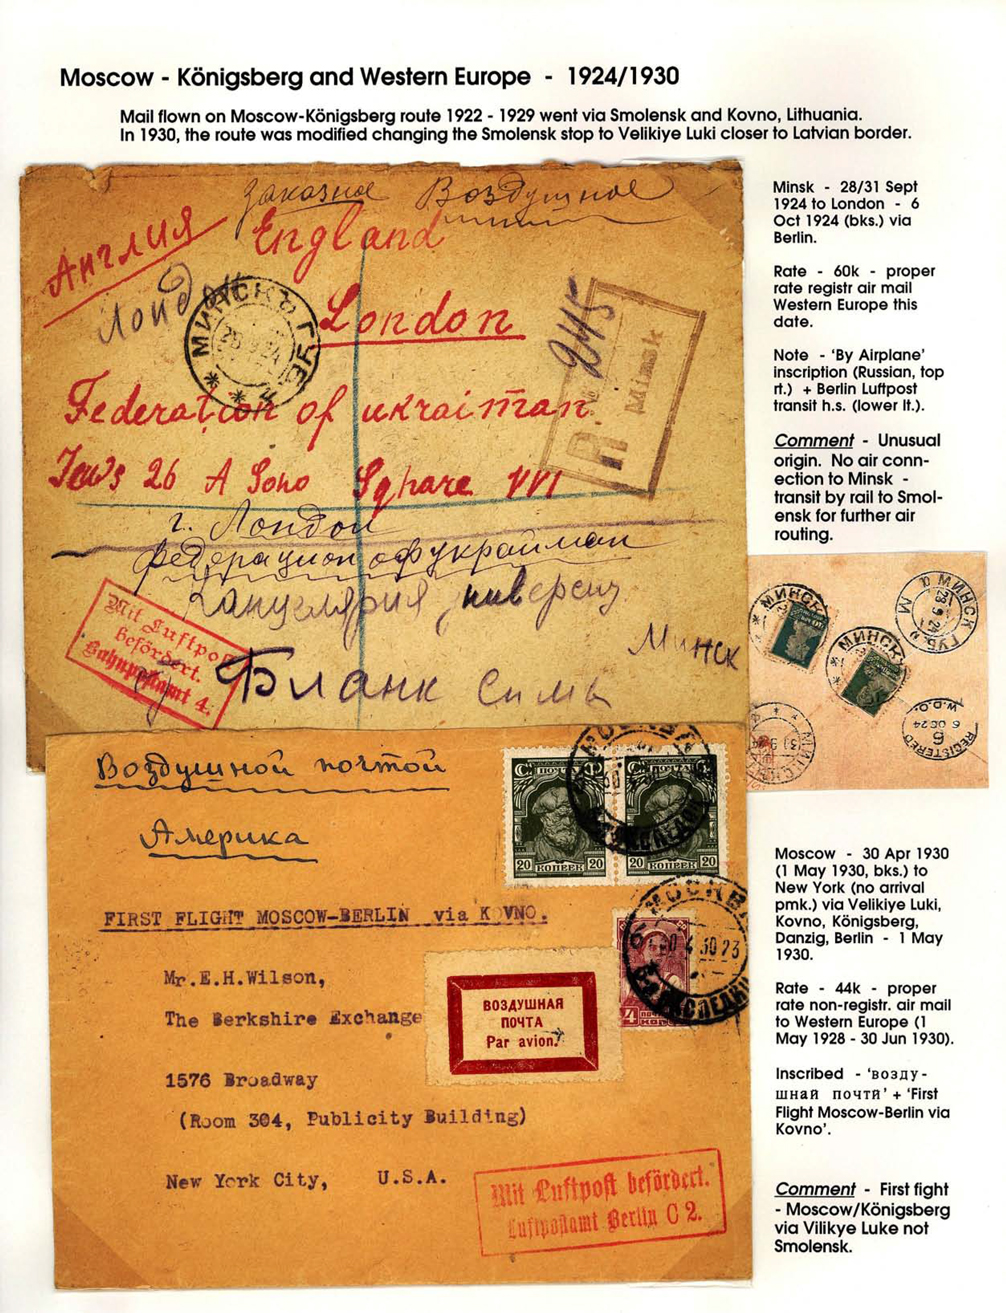 Moscow - Königsberg and Western Europe - 1924/1930
Mail flown on Moscow-Königsberg route 1922 - 1929 went via Smolensk and Kovno, Lithuania.
In 1930, the route was modified changing the Smolensk stop to Velikiye Luki closer to Latvian border.
Заказное Воздушное
Англия England
Лондон
МИНСКЪ ГУБ
London
2415
R Minsk
Federation of ukrainian
Jews 26 A Soho Sqhare W1
г. Лондон
Федерацион оф украиман
Канцелярия
Минск
Бланк Симы
Mit Luftpost
befördert.
Bahnpostamt 4.
Minsk - 28/31 Sept
1924 to London - 6
Oct 1924 (bks.) via
Berlin.
Rate - 60k - proper
rate registr air mail
Western Europe this
date.
Note - 'By Airplane'
inscription (Russian, top
rt.) + Berlin Luftpost
transit h.s. (lower lt.).
Comment - Unusual
origin. No air conn-
ection to Minsk -
transit by rail to Smol-
ensk for further air
routing.
МИНСК
МИНСК ГУБ.
МИНСКЪ
REGISTERED
6
6 OC 24
W.D.O.
Воздушной почтой
Америка
ПОЧТА
20 КОПЕЕК 20
20 КОПЕЕК 20
МОСКВА
FIRST FLIGHT MOSCOW-BERLIN via KOVNO.
МОСКВА
30 4 30 23
4
Mr.E.H.Wilson,
The Berkshire Exchange
1576 Broadway
(Room 304, Publicity Building)
New York City, U.S.A.
ВОЗДУШНАЯ
ПОЧТА
Par avion.
Mit Luftpost befördert.
Luftpostamt Berlin C 2.
Moscow - 30 Apr 1930
(1 May 1930, bks.) to
New York (no arrival
pmk.) via Velikiye Luki,
Kovno, Königsberg,
Danzig, Berlin - 1 May
1930.
Rate - 44k - proper
rate non-registr. air mail
to Western Europe (1
May 1928 - 30 Jun 1930).
Inscribed - 'возду-
шнай почтя' + 'First
Flight Moscow-Berlin via
Kovno'.
Comment - First fight
- Moscow/Königsberg
via Vilikye Luke not
Smolensk.